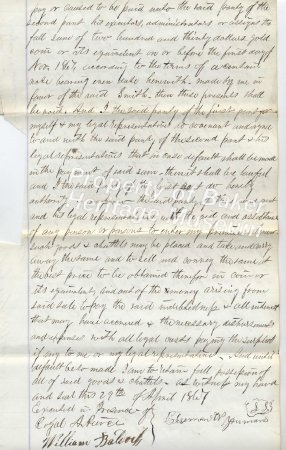 pay or caused to be paid unto the said party of the
second part his executors, administrators or assigns the
full sum of two hundred and thirty dollars gold
coin or its equivalent on or before the first day of
Nov. 1867 according to the terms of a certain
note bearing even date herewith made by me in
favor of the said Smith. then these presents shall
be void. And I the said party of the first part for
myself & my legal representatives do covenant and agree
to and with the said party of the second part & his
legal representatives that in case default shall be made
in the payment of said sum then it shall be lawful
and I the said party of the first part do hereby
authorize the said party of the second part
and his legal representatives with the aid and assistance
of any person or persons to enter my premises
such goods & chattels may be placed and take and carry
away the same and to sell and convey the same at
the best price to be obtained therefor in coin or
its equivalent and out of the money arising from
said sale to pay the said indebtedness & all interest
that may have accrued & the necessary
and expenses with all legal costs paying the surplus if
if any to me or my legal representatives. And until
default be made I am to retain full possession of
all of said goods & chattels. as witness my hand
and seal this 29th of April 1867
Executed in Presence of
Royal
William
Property of Baker
Heritage Museum